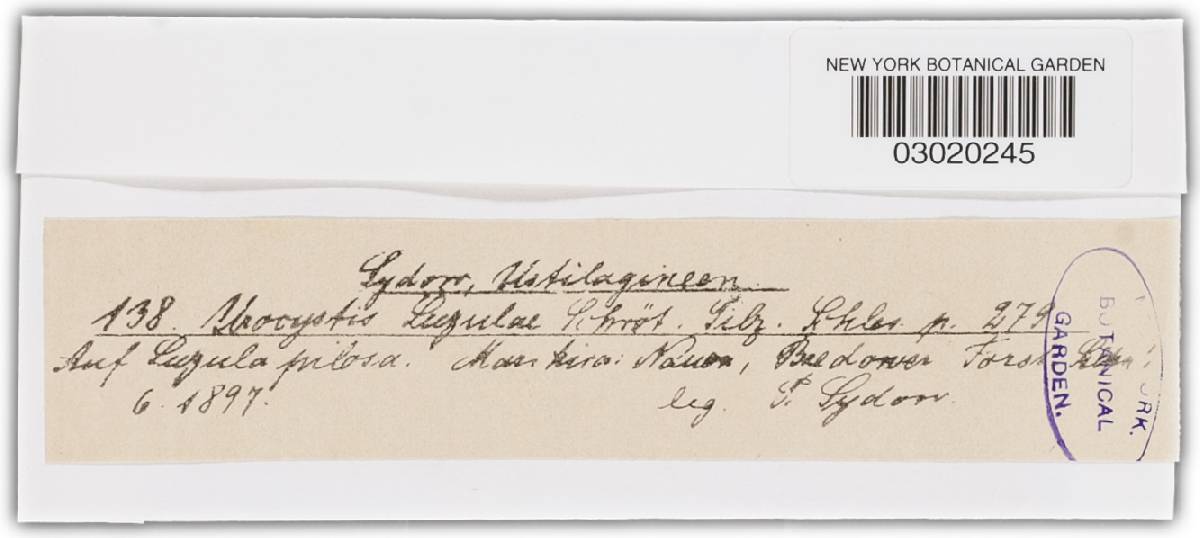 NEW YORK BOTANICAL GARDEN
03020245
Sydow, Ustilagineen.
138. Urocystis Luzulae Schröt. Pilz. Schles. p. 279
Auf Luzula pilosa. Marchica: Nauen, Bredower Forst
6. 1897. leg. P. Sydow.
YORK.
BOTANICAL
GARDEN.